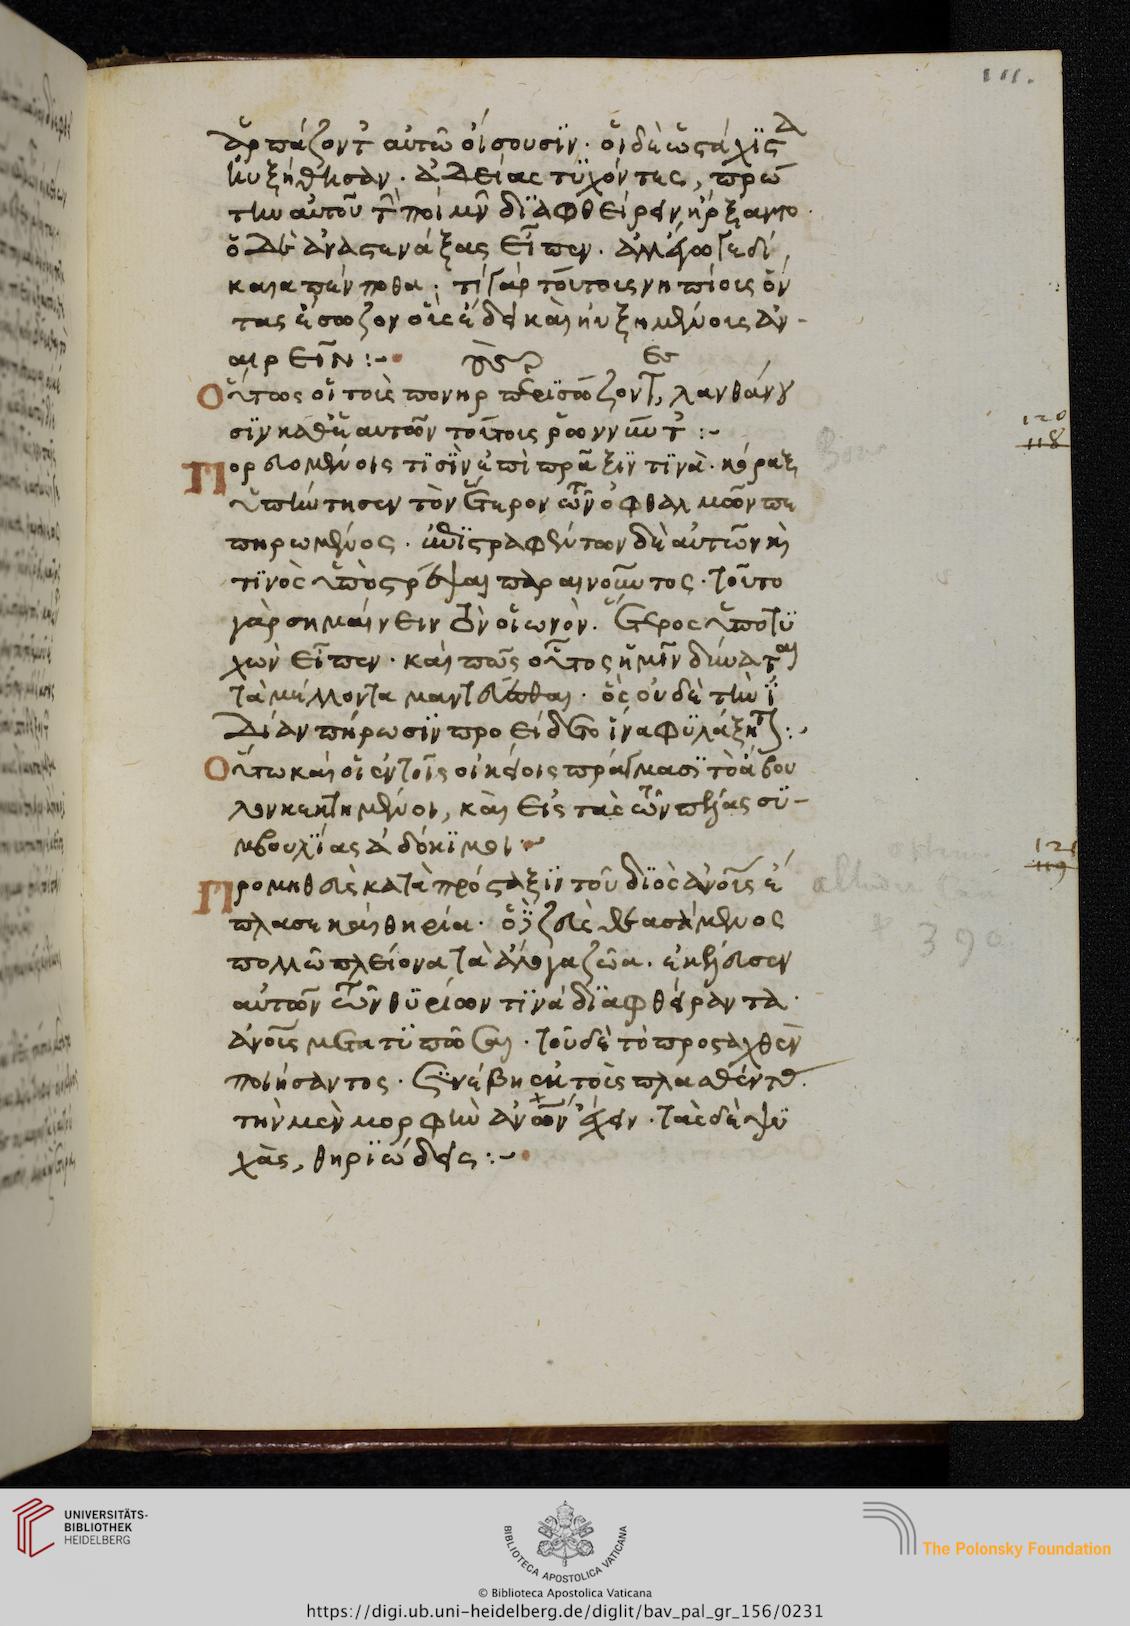 111.
ἁρπάζοντ αὐτῶ οἴσουσϊν. οἱ δὲ ὡς τάχϊστα
ηὐξήθησαν. ἀδείας τϋχόντες, πρώ
την αὐτοῦ τ ποίμν δϊαφθείρειν ἤρξαντο.
ὁ δὲ ἀναστενάξας εἶπεν. ἀλλ' ἔγωγε δί
καια πέπονθα. τί γὰρ τούτοις νηπίοις ὄν
τας ἔσωζον οὓς ἔδει καὶ ηὐξημένους ἀν-
αιρεῖν :-
Οὕτως οἱ τοὺς πονηρ περϊσώζοντ, λανθάνου
σϊν καθ' ἑαυτῶν τούτοις ῥωννύντ :-
120
118
Πορευομένοις τϊσϊν ἐπὶ πρᾶξϊν τϊνὰ. κόραξ
ὑπήντησεν τὸν ἕτερον τῶν ὀφθαλμῶν πε
πηρωμένος. ἐπϊστραφέντων δὲ αὐτῶν καὶ
τϊνὸς ὑποστρέψαι παραινοῦντος. τοῦτο
γὰρ σημαίνειν τὸν οἰωνὸν. ἕτερος ὑποτϋ
χὼν εἶπεν. καὶ πῶς οὗτος ἡμῖν δύναται
τὰ μέλλοντα μαντεύεσθαι. ὃς οὐδὲ τὴν ἰ
δίαν πήρωσϊν προείδετο ἵνα φϋλάξητ :-
Οὕτω καὶ οἱ ἐν τοῖς οἰκείοις πράγμασϊ τὸ ἄβου
λον κεκτημένοι, καὶ εἰς τὰς τῶν πέλας σϋ-
μβουλϊίας ἀδόκϊμοι
121
119
Προμηθεὺς κατὰ πρόσταξϊν τοῦ δϊὸς ἀνοῦς ἔ
πλασε καὶ θηρία. ὁ ζεὺς θεασάμενος
πολλῶ πλείονα τὰ ἄλογα ζῶα. ἐκέλευσεν
αὐτὸν τῶν θϋρίων τϊνὰ δϊαφθείραντα.
ἀνοῦς μετατϋπῶσαι. τοῦ δὲ τὸ προσταχθὲν
ποιήσαντος. σϋνέβη ἐκ τοὺς πλασθέντ.
τὴν μὲν μορφὴν ἀνων ἔχειν. τὰς δὲ ψϋ
χὰς, θηρϊώδεις :-
390
UNIVERSITÄTS-
BIBLIOTHEK
HEIDELBERG
BIBLIOTECA APOSTOLICA VATICANA
The Polonsky Foundation
© Biblioteca Apostolica Vaticana
https://digi.ub.uni-heidelberg.de/diglit/bav_pal_gr_156/0231